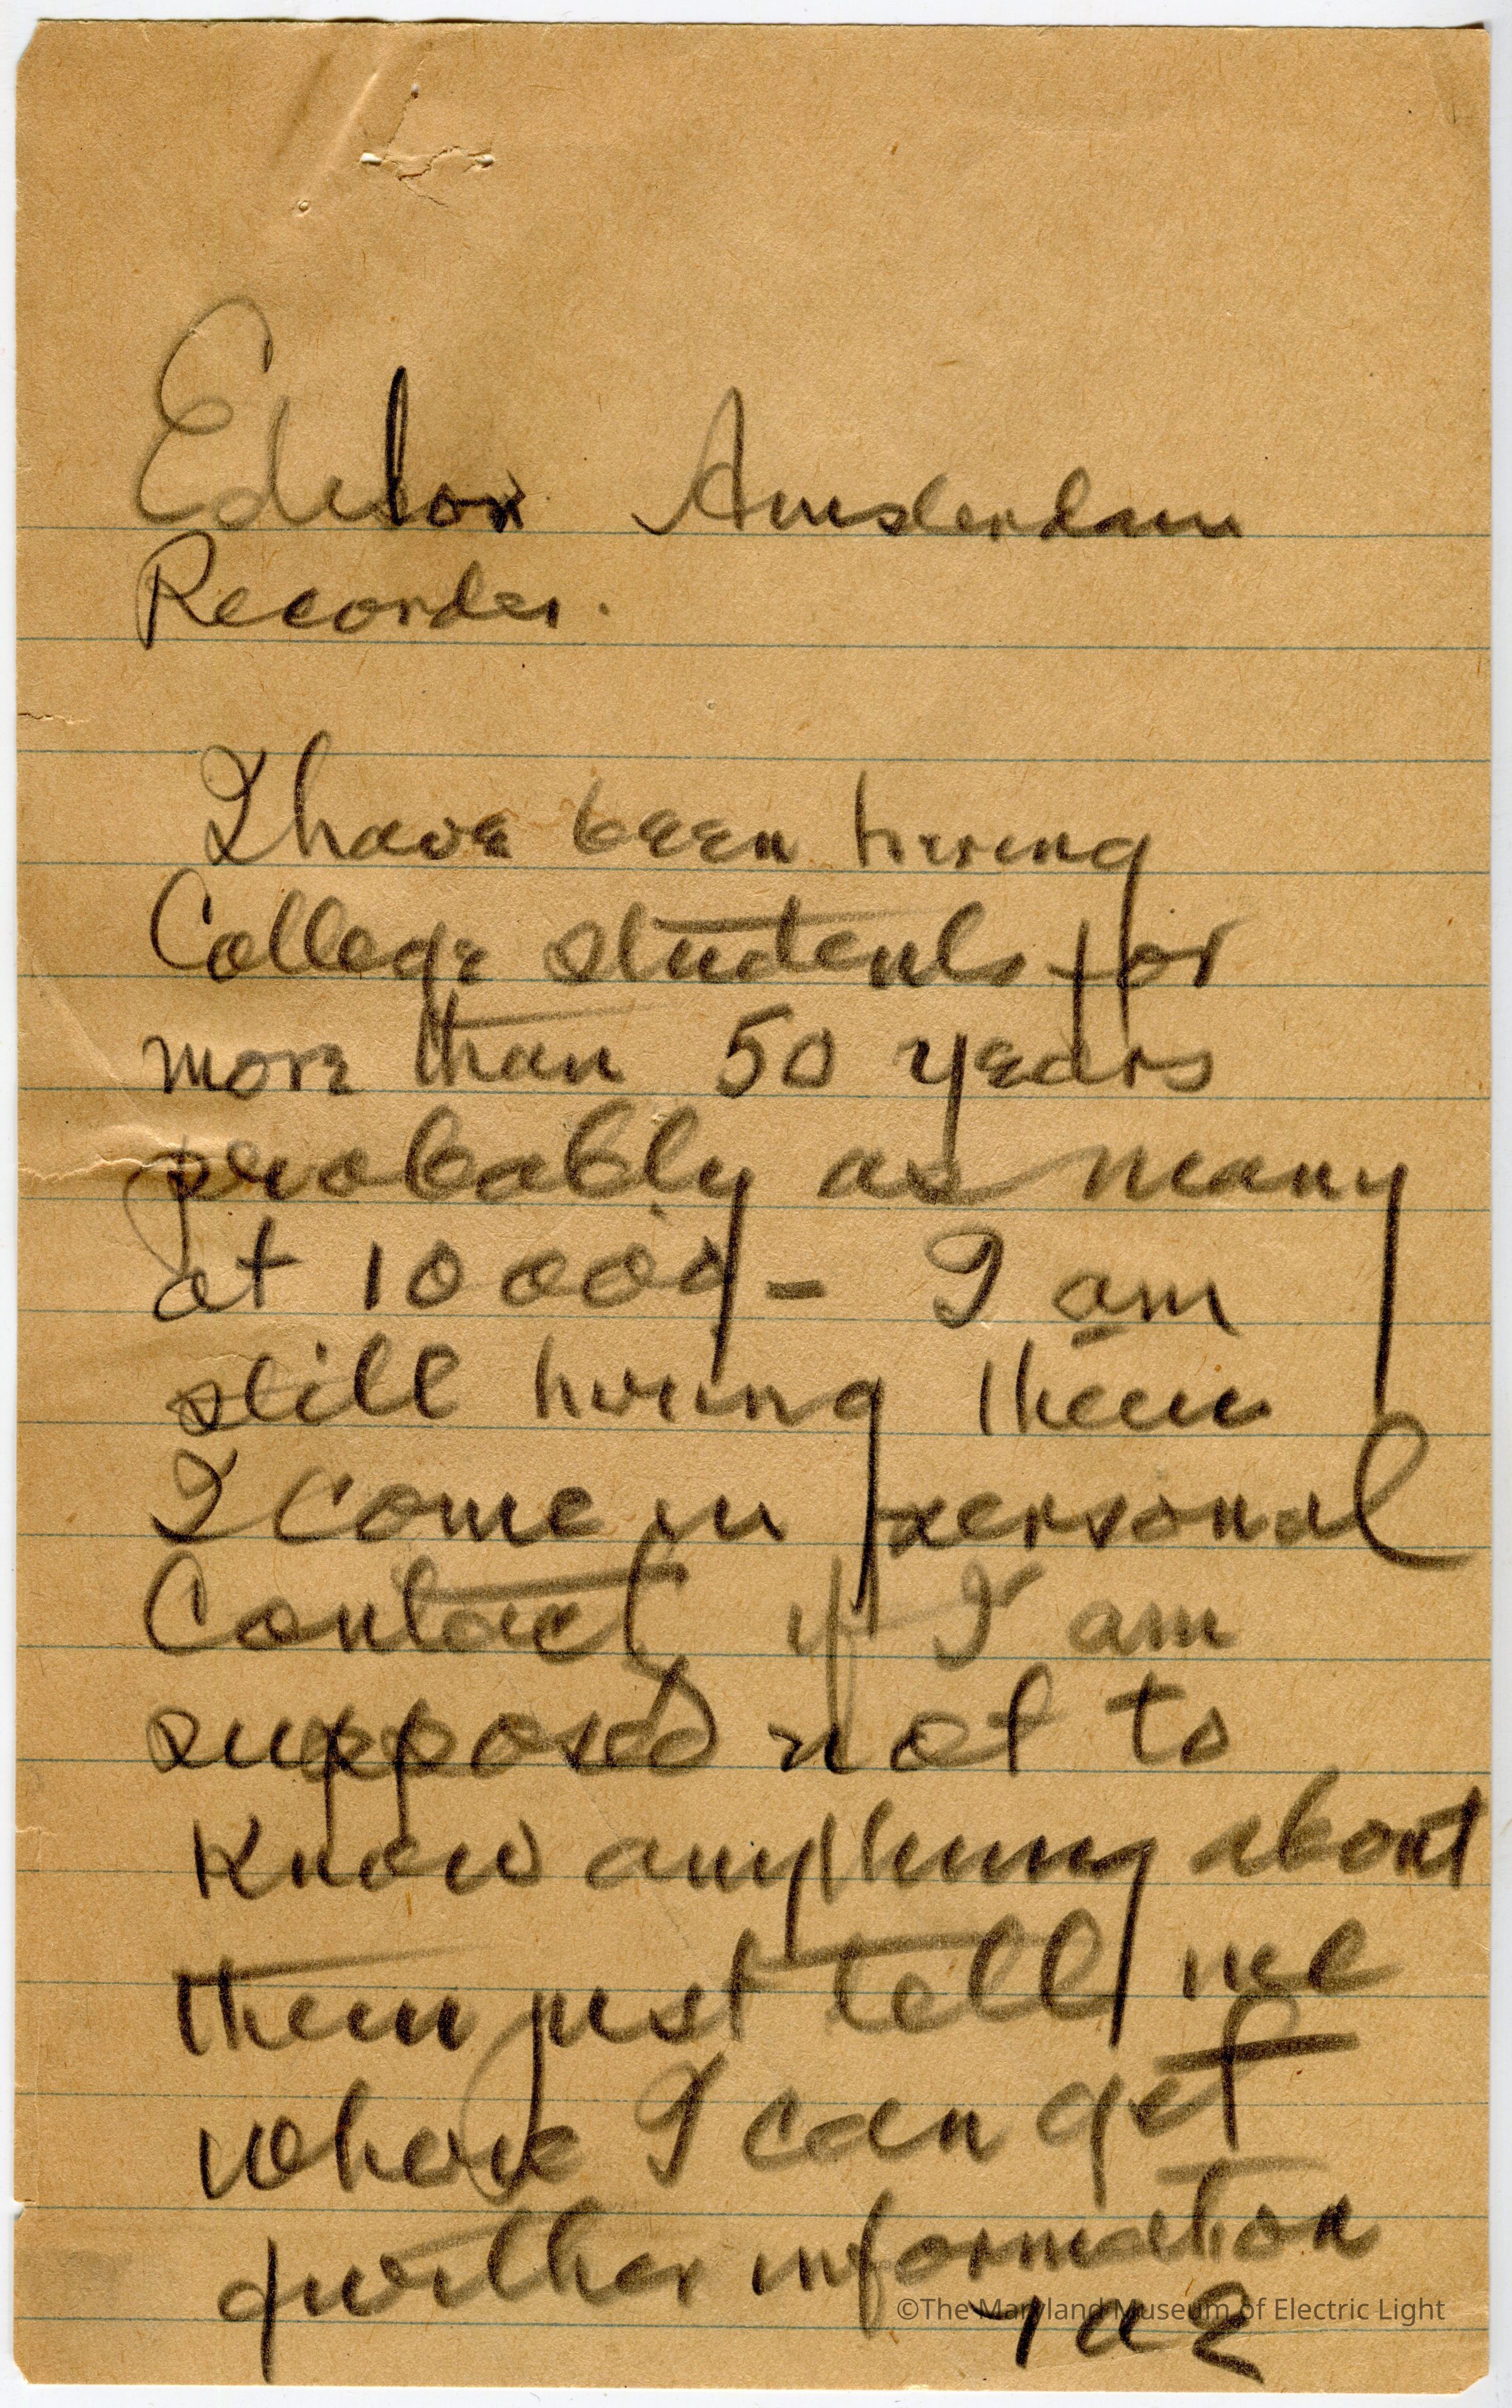 Editor Amsterdam
Recorder.
I have been hiring
College students for
more than 50 years
probably as many
at 10000 - I am
still hiring them
I come in personal
Contact if I am
supposed not to
know anything about
them just tell me
where I can get
further information
©The Maryland Museum of Electric Light